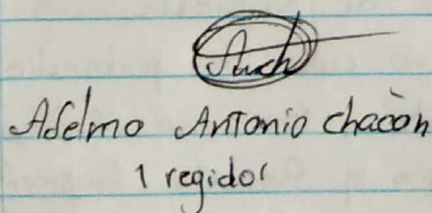 Adelmo Antonio chacòn
1 regidor